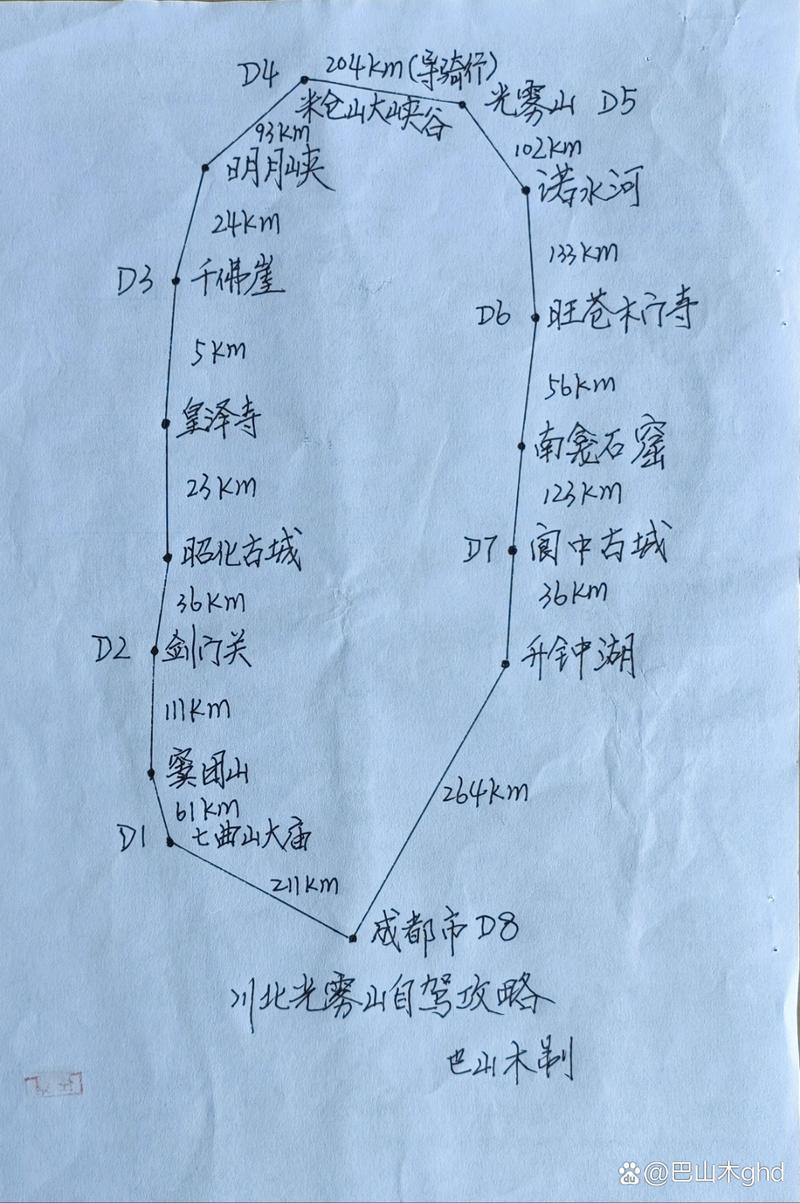 D4
204km(导骑行)
米仓山大峡谷
光雾山 D5
93km
102km
明月峡
诺水河
24km
133km
D3 千佛崖
D6 旺苍木门寺
5km
56km
皇泽寺
南龛石窟
23km
123km
昭化古城
D7 阆中古城
36km
36km
D2 剑门关
升钟湖
111km
窦团山
264km
61km
D1 七曲山大庙
211km
成都市 D8
川北光雾山自驾攻略
巴山木制
@巴山木ghd